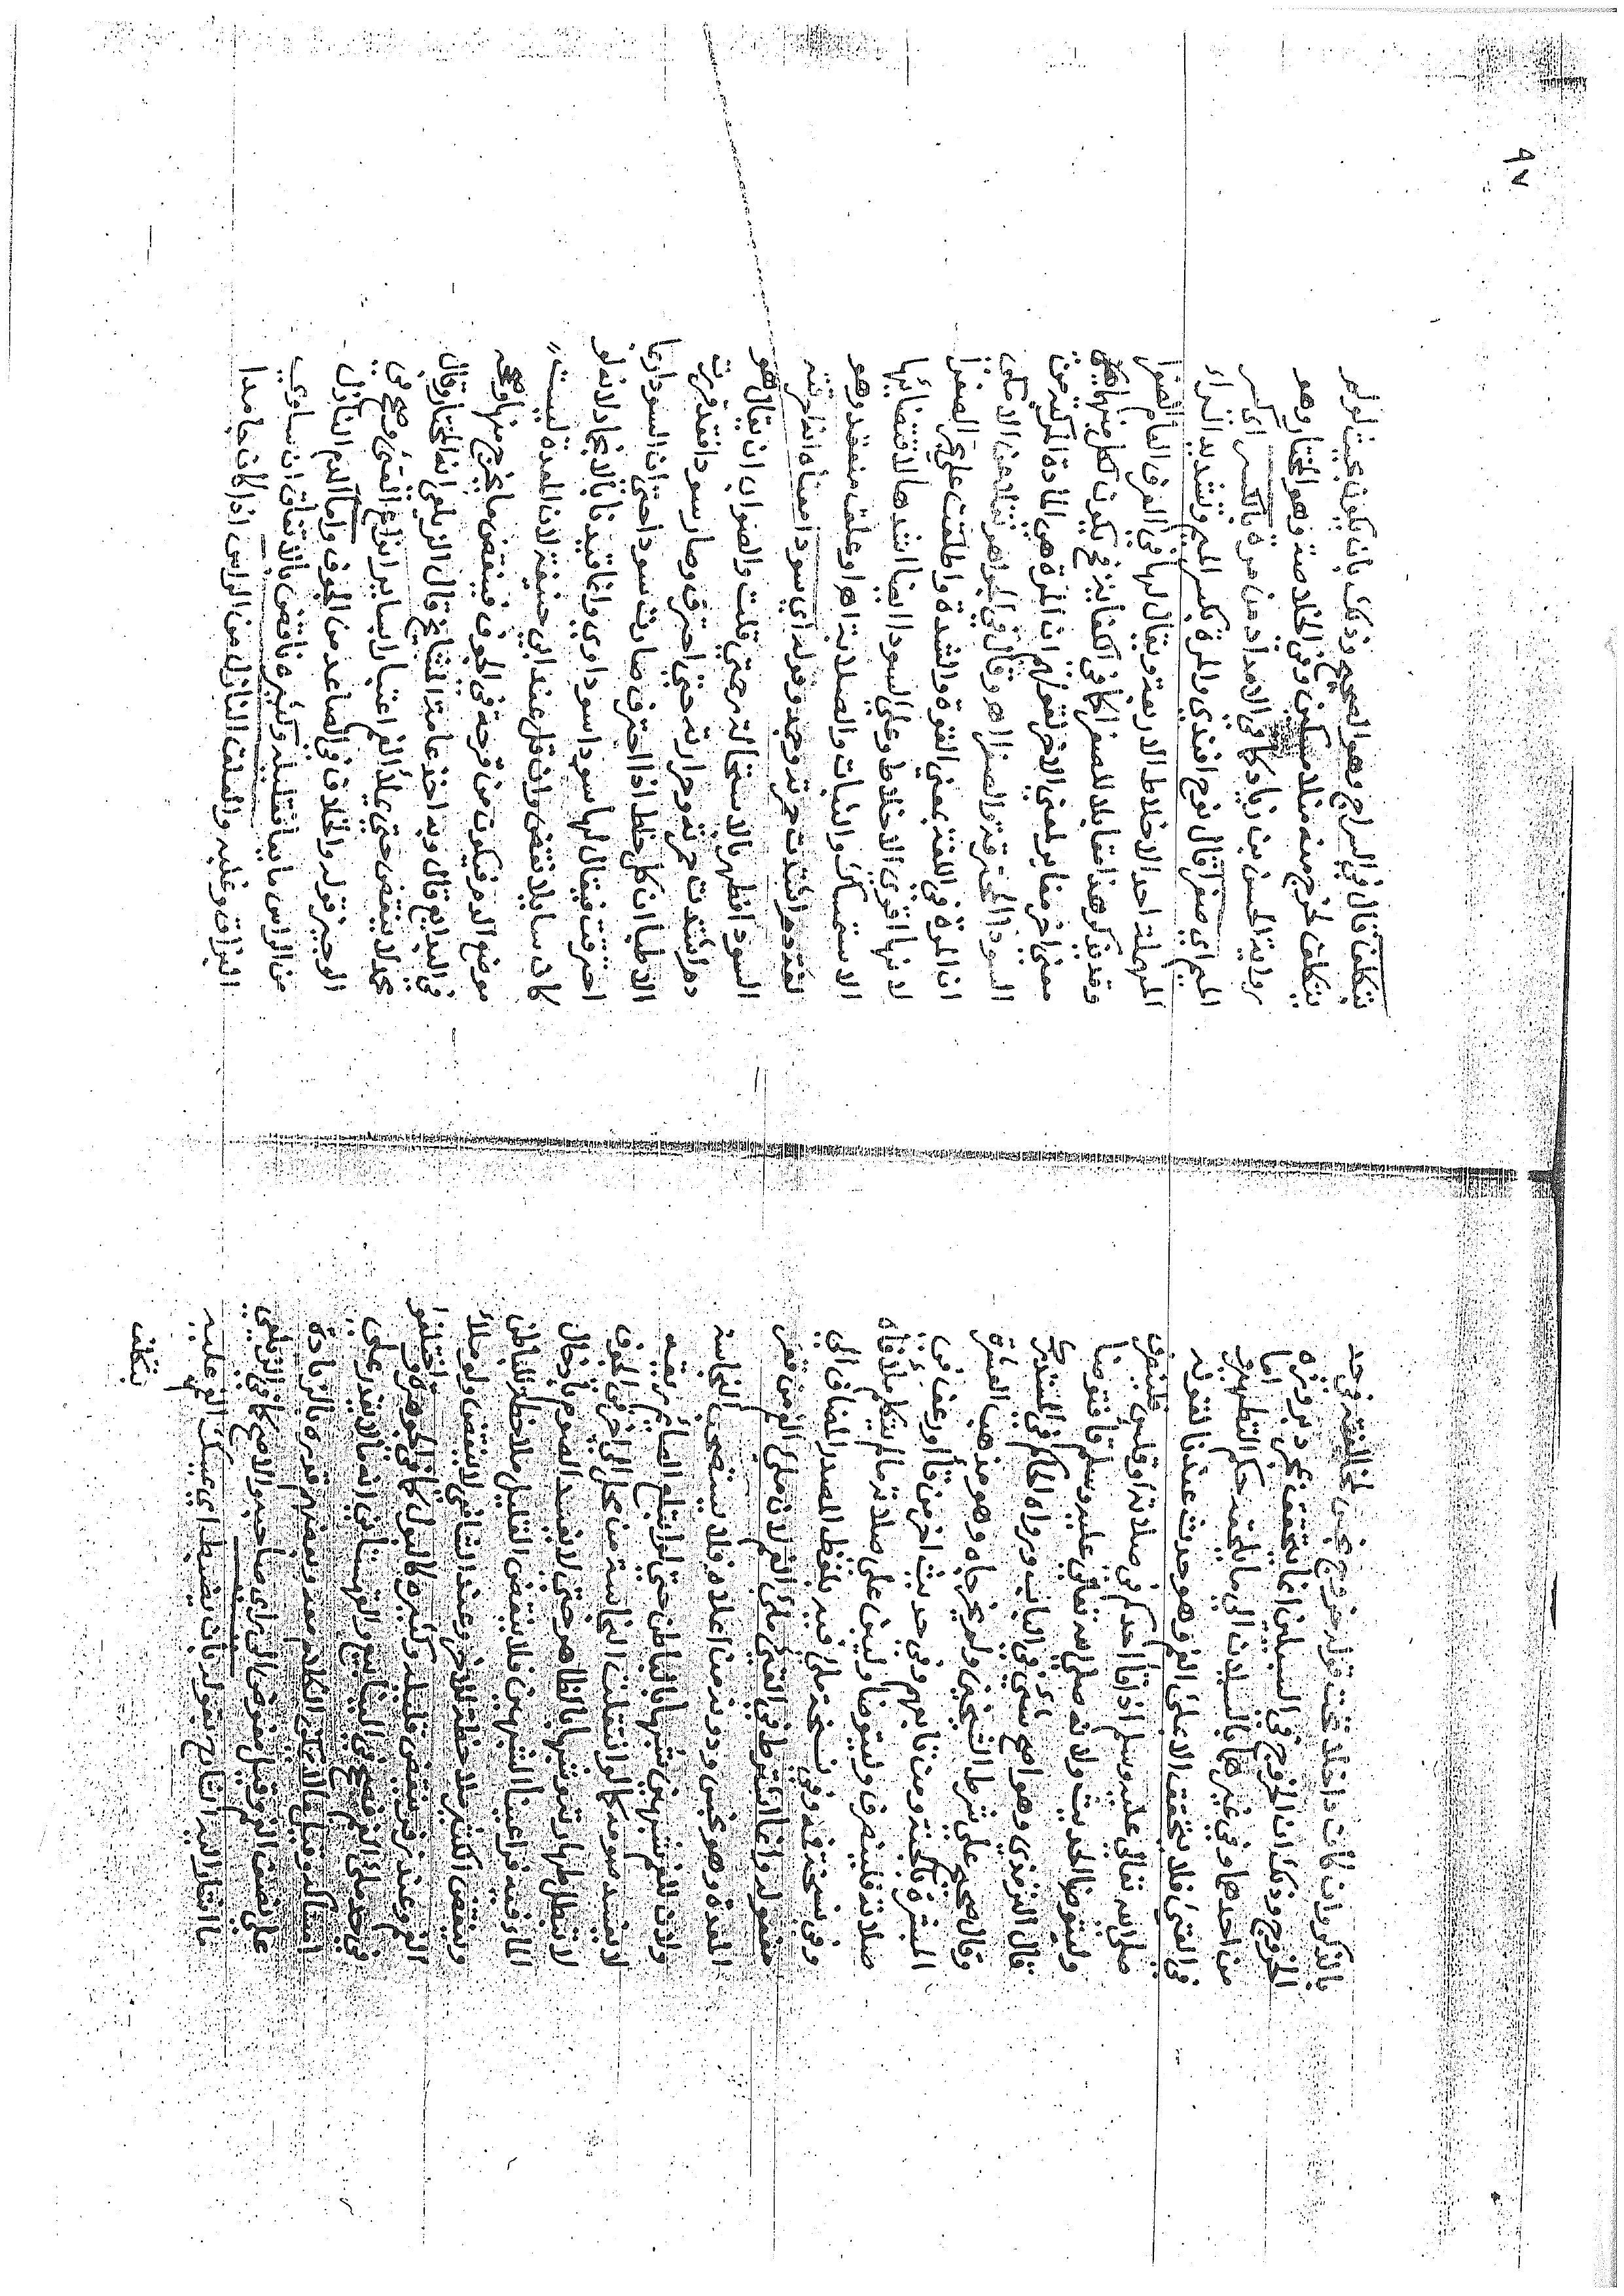 بالذكر وان كانت داخلة تحت قوله خروج نجس لمخالفته في حد
الخروج وذكر ان الخروج في السبيلين انما يتحقق بمجرد بروزه اما
من احدهما وفي غيرهما بالسيلان الى ما يلحقه حكم التطهير و
في القيء فلا يتحقق الا بملئ الفم وهو حدث عندنا لقوله
صلى الله تعالى عليه وسلم اذا قاء احدكم في صلاته او قلس فلينصرف
وليتوضا الحديث ولانه صلى الله تعالى عليه وسلم قاء فتوضا
قال الترمذي وهو اصح شيء في الباب ورواه الحاكم في المستدرك
وقال صحيح على شرط الشيخين ولم يخرجاه وهو مذهب العشرة
المبشرة بالجنة ومن تابعهم وفي حديث اخر من قاء او رعف في
صلاته فلينصرف وليتوضا وليبن على صلاته ما لم يتكلم ملأ فاه
وفي نسخة فه وفي نسخة ملئ فيه بلفظ المصدر المضاف الى
مفعوله وانما اشترط في القيء ملئ الفم لان ملئ الفم من قعر
المعدة وهو نجس ودونه من اعلاه فلا يستصحب النجاسة
ولان للفم شبهين شبها بالباطن حتى لو ابتلع الصائم ريقه
لا يفسد صومه كما لو انتقلت النجاسة من محل الى اخر في الجوف
لا تبطل طهارته وشبها بالظاهر حتى لا يفسد الصوم بادخال
الماء فيه فراعينا الشبهين فلا ينقض القليل ملاحظة للباطن
وينقض الكثير ملاحظة للاخر وعند الشافعي لا ينقض ولو ملأ
الفم وعند زفر ينقض قليله وكثيره كالبول كما في الجوهرة واختلفوا
في حد ملئ الفم فصحح في الينابيع والقهستاني انه ما لا يقدر على
امساكه وقيل ما لا يمكن الكلام معه وبعضهم قدره بالزيادة
على نصف الفم وقيل مفوض الى راي صاحبه والاصح كما في الزيلعي
ما اشار اليه الشارح بقوله بان يضبط اي يمسك الفم عليه
بتكلف
٩٧
بتكلف قال في السراج وهو الصحيح وذلك بان يكون بحيث لو لم
يتكلف لخرج منه وفي الخلاصة وهو المختار وهو
رواية الحسن بن زياد كما في الامداد من مرة بالكسر اي كسر
الميم اي صفرا قال نوح افندي والمرة بكسر الميم وتشديد الراء
المهملة احد الاخلاط الاربعة ويقال لها في العرف العام الصفرا
وقد يذكر هذا مقابلا للصفرا كما في فيكون لكل منهما
معنى اخر مغاير لمعنى الاخر لقولهم ان المرة هي المادة المركبة من
السودا المحترقة والصفرا اهـ وقال في الجواهر نقلا عن الاكمل
ان المرة في اللغة بمعنى القوة والشدة واطلقت على الصفرا
لانها اقوى الاخلاط وعلى السودا ايضا اشدها لاقتضائها
الاستمساك والثبات والصلابة اهـ او علق منعقد وهو
لغة دم اشتدت حمرته وجمد وقوله اي سودا معناه انما قيد
السودا فظهر بالاستحالة رحمتي قلت والصواب ان يقال هو
دم اشتدت حمرته وحرارته حتى احترق وصار سودا فقد قررت
الاطبا ان كل خلط اذا احترق صارت سودا حتى ان السودا ربما
احترقت فيقال لها سودا سوداوي وانما قيدنا بالانجماد لانه لو
كان سايلا نقض وان قل عند ابي حنيفة لان المعدة ليست
موضع الدم فيكون من قرحة في الجوف فينقض ما يخرج منها وصححه
في البدايع قال وبه اخذ عامة المشايخ قال الزيلعي انه المختار وقال
محمد لا ينقض حتى يملأ الفم اعتبارا بساير انواع القيء وصحح في
الوجيز قوله والخلاف في الصاعد من الجوف واما الدم النازل
من الراس مايعا فقليله وكثيره ناقض بالاتفاق ان ساوى
البزاق وغلبه والعلق النازل من الراس اذا كان جامدا